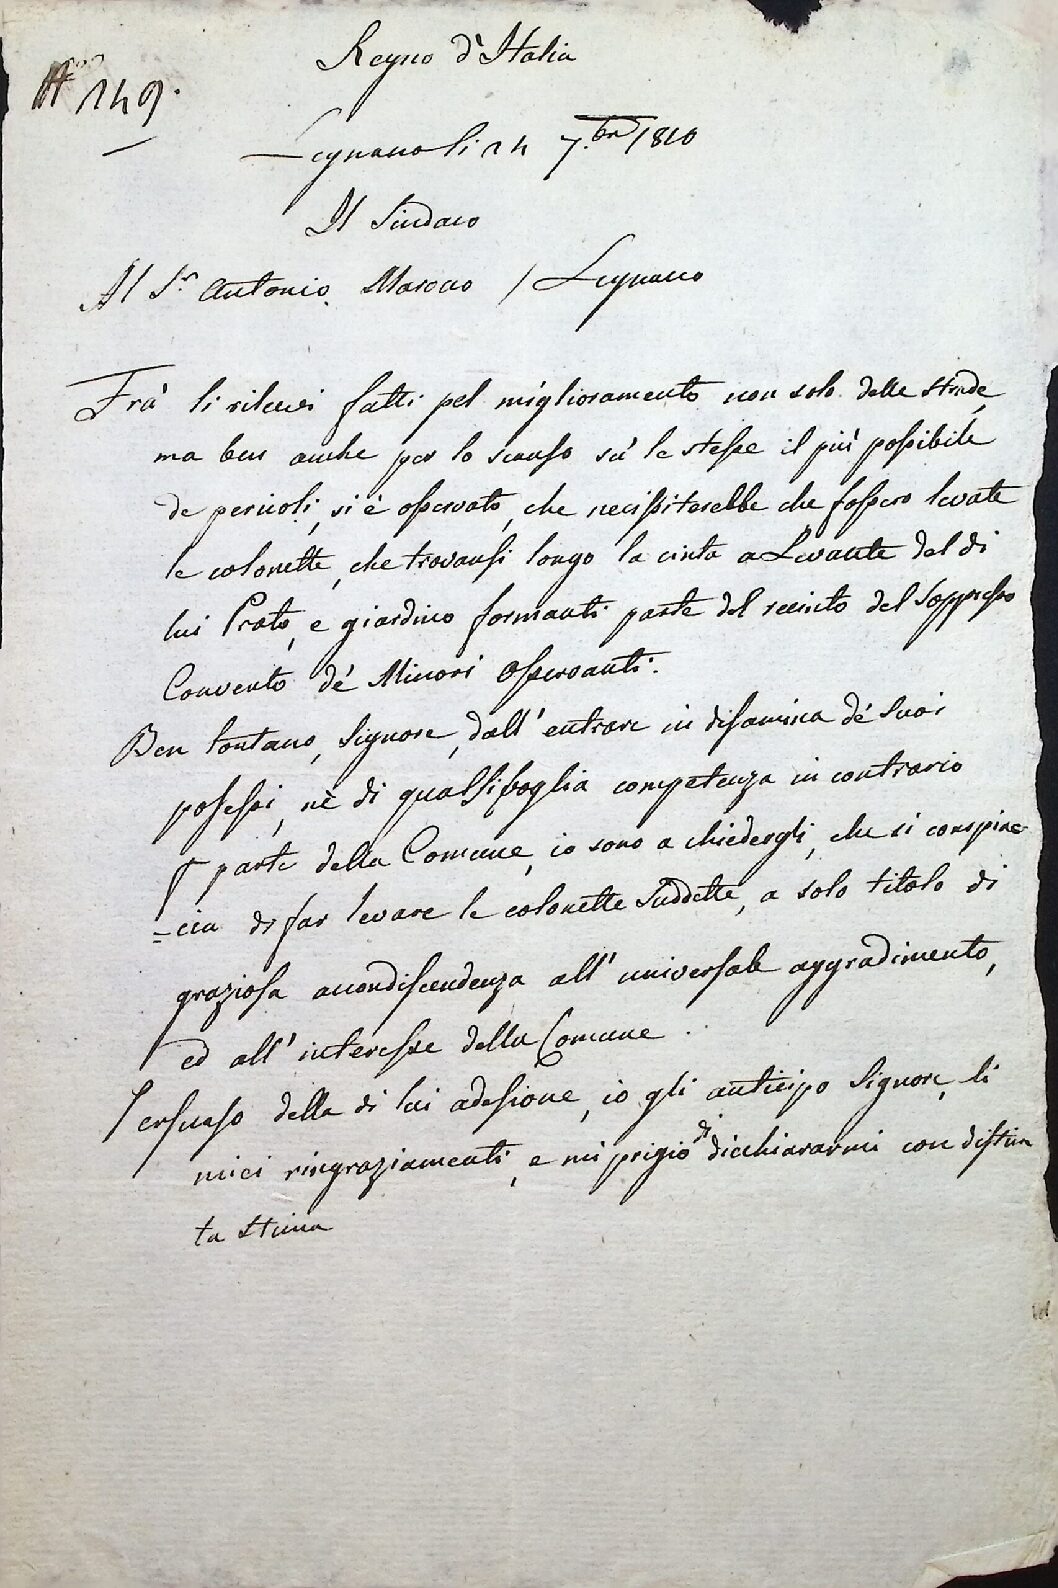 Regno d'Italia
N.° 149.
Legnano li 24 7.bre 1810
Il Sindaco
Al S.r Antonio Marocco / Legnano
Frà li rilievi fatti pel miglioramento non solo delle strade,
ma ben anche per lo scanso sù le stesse il più possibile
de pericoli, si è osservato, che necissiterebbe che fossero levate
le colonette, che trovansi longo la cinta a Levante del di
lui Prato, e giardino formanti parte del recinto del Soppresso
Convento de' Minori Osservanti.
Ben lontano, Signore, dall' entrare in disamina de' suoi
possessi, nè di qualsisvoglia competenza in contrario
p parte della Comune, io sono a chiedergli, che si compiac-
=cia di far levare le colonette suddette, a solo titolo di
graziosa accondiscendenza all' universale aggradimento,
ed all' interesse della Comune.
Persuaso della di lui adesione, io gli anticipo Signore, li
miei ringraziamenti, e mi prigio di dicchiararmi con distin
ta stima